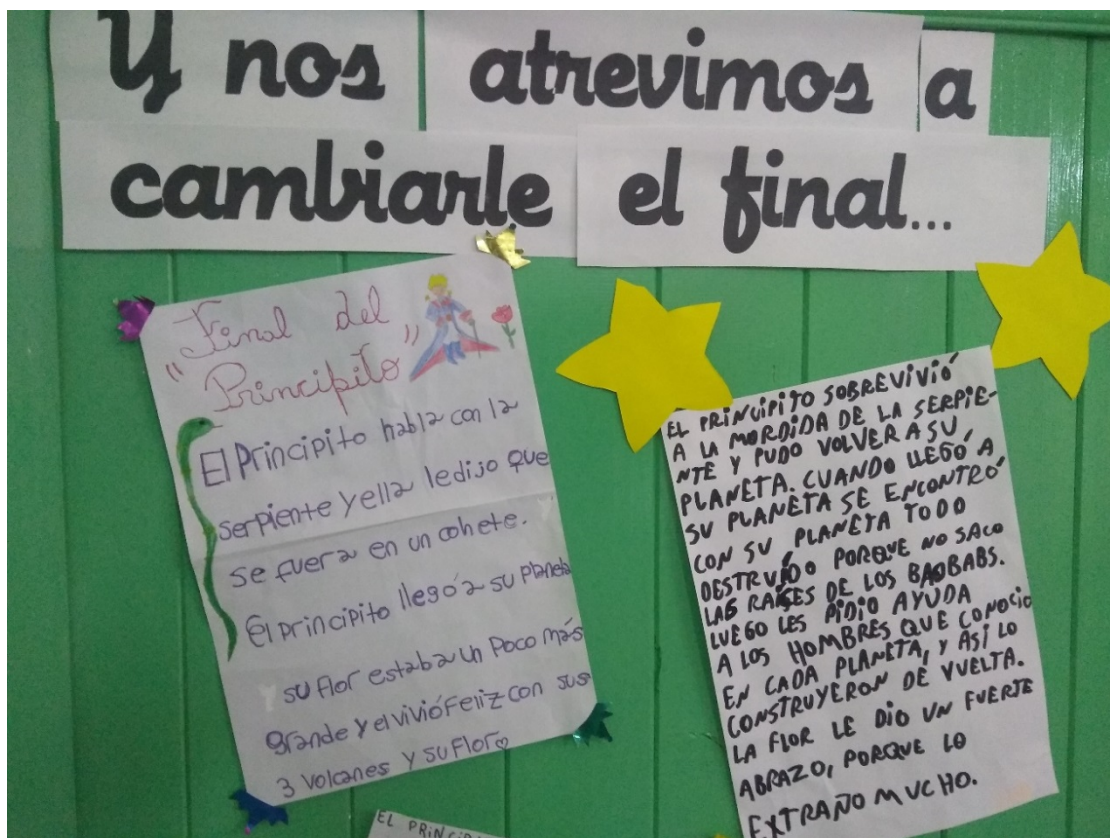 Y nos atrevimos a
cambiarle el final...
"Final del
Principito"
El Principito habla con la
serpiente y ella le dijo que
se fuera en un cohete.
El principito llegó a su planeta
y su flor estaba un poco más
grande y el vivió feliz con sus
3 volcanes y su flor
EL PRINCIPITO SOBREVIVIÓ
A LA MORDIDA DE LA SERPIE-
NTE Y PUDO VOLVER A SU
PLANETA. CUANDO LLEGÓ A
SU PLANETA SE ENCONTRÓ
CON SU PLANETA TODO
DESTRUÍDO PORQUE NO SACO
LAS RAÍSES DE LOS BAOBABS.
LUEGO LES PIDIO AYUDA
A LOS HOMBRES QUE CONOCIO
EN CADA PLANETA, Y ASÍ LO
CONSTRUYERON DE VUELTA.
LA FLOR LE DIO UN FUERTE
ABRAZO, PORQUE LO
EXTRAÑO MUCHO.
EL